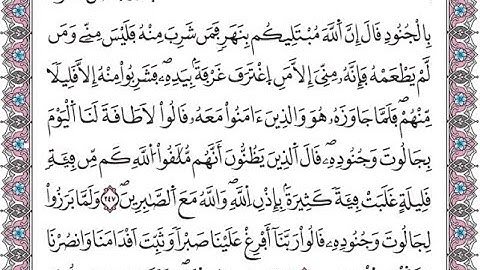 بِالْجُنُودِ قَالَ إِنَّ اَللَّهَ مُبْتَلِيكُم بِنَهَرٍ فَمَن شَرِبَ مِنْهُ فَلَيْسَ مِنِّے وَمَن
لَّمْ يَطْعَمْهُ فَإِنَّهُۥ مِنِّىَ إِلَّا مَنِ اِغْتَرَفَ غَرْفَةَۢ بِيَدِهِۦۖ فَشَرِبُواْ مِنْهُ إِلَّا قَلِيلًا
مِّنْهُمْۖ فَلَمَّا جَاوَزَهُۥ هُوَ وَالَّذِينَ ءَامَنُواْ مَعَهُۥ قَالُواْ لَا طَاقَةَ لَنَا اَلْيَوْمَ
بِجَالُوتَ وَجُنُودِهِۦۖ قَالَ اَلذِينَ يَظُنُّونَ أَنَّهُم مُّلَٰقُواْ اُللَّهِ كَم مِّن فِئَةٍ
قَلِيلَةٍ غَلَبَتْ فِئَةً كَثِيرَةَۢ بِإِذْنِ اِللَّهِۖ وَاللَّهُ مَعَ اَلصَّٰبِرِينَۖ ٢٤٧ وَلَمَّا بَرَزُواْ
لِجَالُوتَ وَجُنُودِهِۦ قَالُواْ رَبَّنَا أَفْرِغْ عَلَيْنَا صَبْرًا وَثَبِّتَ اَقْدَامَنَا وَانصُرْنَا